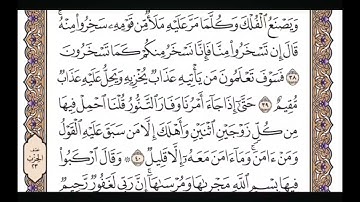 وَيَصْنَعُ ٱلْفُلْكَ وَكُلَّمَا مَرَّ عَلَيْهِ مَلَأٌ مِّن قَوْمِهِۦ سَخِرُوا۟ مِنْهُ ۚ
قَالَ إِن تَسْخَرُوا۟ مِنَّا فَإِنَّا نَسْخَرُ مِنكُمْ كَمَا تَسْخَرُونَ
٣٨ فَسَوْفَ تَعْلَمُونَ مَن يَأْتِيهِ عَذَابٌ يُخْزِيهِ وَيَحِلُّ عَلَيْهِ عَذَابٌ
مُّقِيمٌ ٣٩ حَتَّىٰٓ إِذَا جَآءَ أَمْرُنَا وَفَارَ ٱلتَّنُّورُ قُلْنَا ٱحْمِلْ فِيهَا
مِن كُلٍّ زَوْجَيْنِ ٱثْنَيْنِ وَأَهْلَكَ إِلَّا مَن سَبَقَ عَلَيْهِ ٱلْقَوْلُ
وَمَنْ ءَامَنَ ۚ وَمَآ ءَامَنَ مَعَهُۥٓ إِلَّا قَلِيلٌ ٤٠ ۞ وَقَالَ ٱرْكَبُوا۟
فِيهَا بِسْمِ ٱللَّهِ مَجْر۪ىٰهَا وَمُرْسَىٰهَآ ۚ إِنَّ رَبِّى لَغَفُورٌ رَّحِيمٌ
الحزب
٢٣